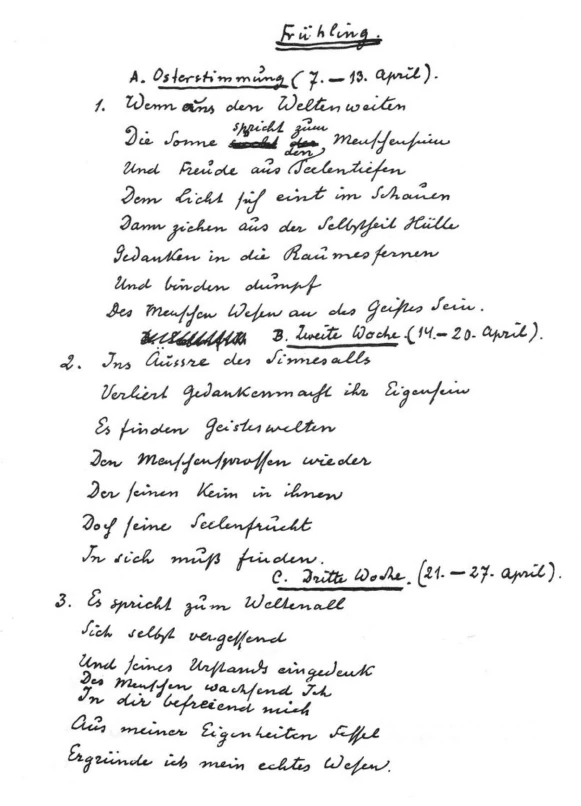 Frühling.
A. Osterstimmung (7. – 13. April).
1. Wenn aus den Weltenweiten
Die Sonne spricht zum Menschensein
Und Freude aus den Seelentiefen
Dem Licht sich eint im Schauen
Dann ziehen aus der Selbstheit Hülle
Gedanken in die Raumesfernen
Und binden dumpf
Des Menschen Wesen an des Geistes Sein.
B. Zweite Woche. (14. – 20. April).
2. Ins Äussre des Sinnesalls
Verliert Gedankenmacht ihr Eigensein
Es finden Geisteswelten
Den Menschensprossen wieder
Der seinen Keim in ihnen
Doch seine Seelenfrucht
In sich muß finden.
C. Dritte Woche. (21. – 27. April).
3. Es spricht zum Weltenall
Sich selbst vergessend
Und seines Urstands eingedenk
Des Menschen wachsend Ich
In dir befreiend mich
Aus meiner Eigenheiten Fessel
Ergründe ich mein echtes Wesen.